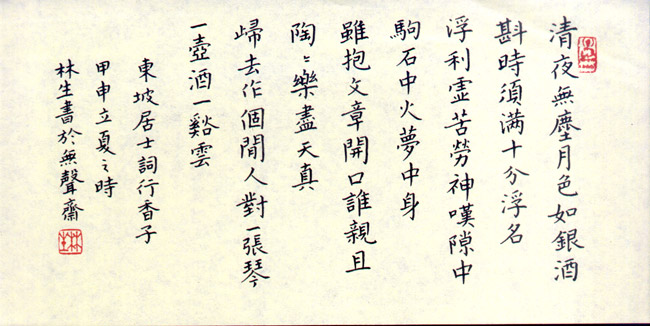 清夜無塵月色如銀酒
斟時須满十分浮名
浮利虛苦勞神嘆隙中
駒石中火夢中身
雖抱文章開口誰親且
陶〻樂盡天真
歸去作個閒人對一張琴
一壺酒一谿雲
東坡居士詞行香子
甲申立夏之時
林生書於無聲齋